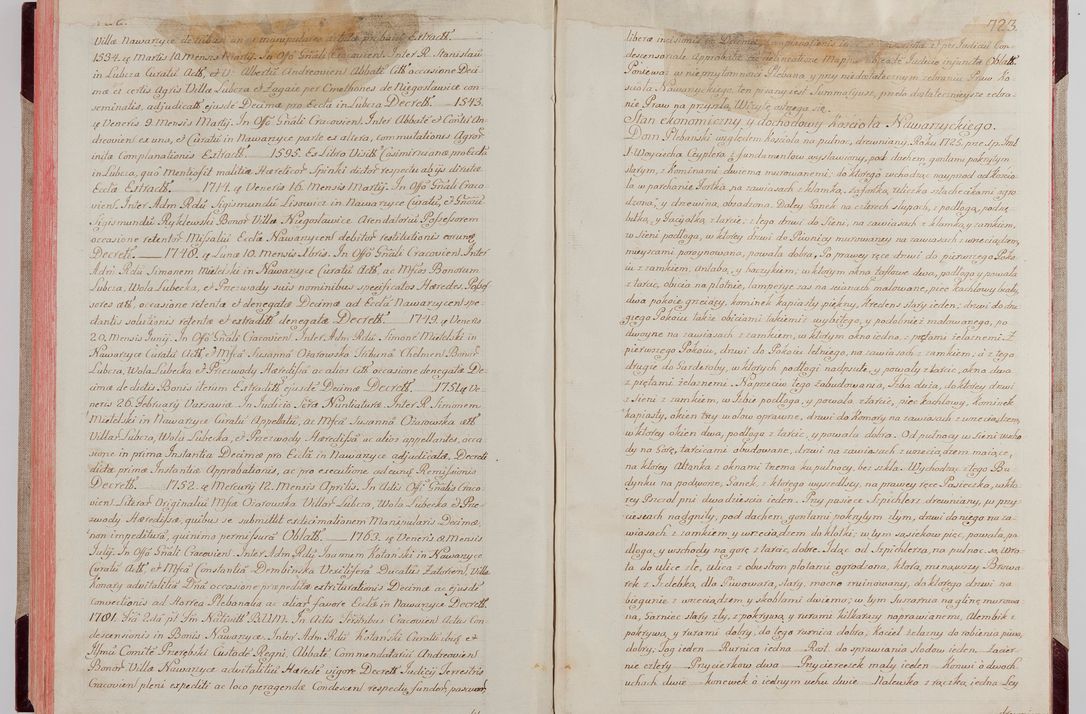 Villæ Nawarzyce
1534. q Martis 10. Mensis Martij. In Offõ Gñali Cracovien. Inter R. Stanislaũ
in Lubcza Curatũ Actt, et V. Albertũ Andreovien Abbatẽ Citt. occasione Deci-
mæ et certis Agris Villæ Lubcza et Zagaie per Cmethones de Niegoslawice con-
seminatis, adjudicatt. ejusdẽ Decimæ pro Ecclã in Lubcza Decrett. ___ 1543.
q Veneris 9. Mensis Martij. In Offõ Gñali Cracovien. Inter Abbatẽ et Contũ An-
dreovien ex una, et Curatũ in Nawarzyce parte ex altera, commutationis Agror
inita Complanationis Extractt. ___ 1595. Ex Libro Visitt. Casimirianæ pro Ecclã
in Lubcza, quo Mentio fit malitiæ Hæreticor Spinki dictor respectu abijs dirutæ
Ecclæ Extractt. ___ 1714. q Veneris 16. Mensis Martij. In Offõ Gñali Craco-
vien. Inter Adm Rdũ Sigismundũ Lisowicz in Nawarzyce Curatũ, et Gñosũ
Sigismundũ Ryklewski Bonor Villæ Niegoslawice Arendatoriũ Possessorem
occasione retentor Missaliũ Ecclæ Nawarzycen debitor restitutionis eorund
Decrett. ___ 1748. q Lunæ 10. Mensis Xbris. In Offõ Gñali Cracovien. Inter
Adm Rdũ Simonem Mielelski in Nawarzyce Curatũ Actt. ac Mfcos Bonorum
Lubcza, Wola Lubecka, et Przewody suis nominibus specificatos Hæredes, Posses-
sores citt. occasione retentæ et denegatæ Decimæ ad Ecclã Nawarzycen spe-
ctantis solutionis retentæ et extraditt. denegatæ Decrett. ___ 1749. q Veneris
20. Mensis Junij. In Offõ Gñali Cracovien. Inter Adm Rdũ Simonẽ Mielelski in
Nawarzyce Curatũ Actt. et Mfcã Susannã Ożarowska Tribunã Chelmen Bonor
Lubcza, Wola Lubecka et Przewody Hæredissã ac alios citt. occasione denegatæ De-
cimæ de dictis Bonis iterum Extraditt. ejusdẽ Decimæ Decrett. ___ 1751. q Ve-
neris 26. Februarij Varsaviæ. In Judicio Sacræ Nuntiaturæ. Inter R. Simonem
Mielelski in Nawarzyce Curatũ Appellatũ, ac Mfcã Susannã Ożarowska citt.
Villar Lubcza, Wola Lubecka, et Przewody Hæredissã ac alios appellantes, occa-
sione in prima Instantia Decimæ pro Ecclã in Nawarzyce adjudicatæ. Decreti
dictæ primæ Instantiæ Approbationis, ac pro executione ad eund Remissionis
Decrett. ___ 1752. q Mercurij 12. Mensis Aprilis. In Actis Offi Gñalis Craco-
vien Literar Originaliũ Mfcæ Ożarowska Villar Lubcza, Wola Lubecka et Prze-
wody Hæredissæ, quibus se submittit exticimationem Manipularis Decimæ,
non impeditura, quinimo permissura Oblatt. ___ 1763. q Veneris 8. Mensis
Julij. In Offõ Gñali Cracovien. Inter Adm Rdũ Joannem Kotański in Nawarzyce
Curatũ Actt. et Mfcã Constantiã Dembińska Vexilliferã Ducatus Zatorien, Villæ
Konary advitalitiã Dñã occasione præpeditæ extriturationis Decimæ ac ejusdẽ
convectionis ad Horrea Plebanalia ac aliar favore Ecclæ in Nawarzyce Decrett.
1781. Fria 2da pt Fm Nativitt. B.V.M. In Actis Trstribus Cracovien Actus Con-
descensionis in Bonis Nawarzyce, Inter Adm Rdũ Kotański Curatũ ibid et
Illmũ Comitẽ Przerębski Custodẽ Regni, Abbatẽ Commendatariũ Andreovien
Bonor Villæ Nawarzyce advitalitiũ Hæredẽ vigore Decreti Judicij Terrestris
Cracovien pleni expediti ac loco peragendæ Condescen respectu fundor, pascuor,
723.
liberæ incisionis
descensoriale Approbatæ
Ponieważ w nieprzytomności Plebana, y przy niedostatecznym zebraniu Praw Ko-
scioła Nawarzyckiego, ten pisany jest Summaryusz, przeto dostatecznieysze zebra-
nie Praw na przyszłą Wizytę odzega się.
Stan ekonomiczny y dochodowy Kościoła Nawarzyckiego.
Dom Plebański względem Kościoła na pułnoc, drewniany, Roku 1725. prze Sp. Pml.
X. Woyciecha Czyplera z fundamentu wystawiony, pod dachem, gontami pokrytym
starym, z Kominami dwiema murowanemi; do którego wchodząc naypród od Koscio-
ła w parchanie Fortka na zawiasach z klamką, za fortką, Uliczka sztachecikami ogro-
dzona, y drzewina, obsadzona. Daley Ganek na czterech słupach, z podłogą, podsie-
bitką, y Facyatką z tarcic; z tego drzwi do Sieni, na zawiasach z klamką y zamkiem,
w Sieni podłoga, w ktorey drzwi do Piwnicy murowaney na zawiasach z wrzeciądzem,
mieyscami porysowana, powała dobra. Po prawey ręce drzwi do pierwszego Poko-
iu z zamkiem, antabą, y haczykiem, w którym okna taflowe dwa, podłoga y powała
z tarcic, obicia na płotnie, lamperye zas na scianach malowane, piec kachlowy biały,
dwa pokoie grzeiący, kominek kapiasty piękny, kredens stary ieden; drzwi do dru-
giego Pokoiu także obiciami takiemiż wybitego, y podobnież malowanego, po-
dwoyne na zawiasach z zamkiem, w którym okno iedno, z prętami żelaznemi. Z
pierwszego Pokoiu, drzwi do Pokoiu letniego, na zawiasach z zamkiem; a z tego
drugie do Garderoby, w których podłogi nadpsute, y powały z tarcic, okna dwa
z prętami żelaznemi. Naprzeciw tego zabudowania, Izba duża, do ktorey drzwi
z Sieni z zamkiem, w Izbie podłoga, y powała z tarcic, piec kachlowy, Kominek
kapiasty, okien trzy wołow oprawne, drzwi do Komory na zawiasach z wrzeciądzem,
w ktorey okien dwa, podłoga z tarcic, y powała dobra. Od pułnocy w Sieni wscho-
dy na Górę, tarcicami obudowane, drzwi na zawiasach z wrzeciądzem maiące,
na ktorey Altanka z oknami trzema ku pułnocy, bez szkła. Wychodząc z tego Bu-
dynku na podworze, Ganek, z którego wyszedłszy, na prawey ręce Pasieczka, w któ-
rey Pszczoł pni dwadzieścia ieden. Przy pasiece Szpichlerz drewniany, w przy-
ciesiach nadgniły, pod dachem gontami pokrytym złym, drzwi do niego na za-
wiasach z zamkiem y wrzeciądzem do klotki; w tym sąsiekow pięc, powała, po-
dłoga, y wschody na gorę z tarcic, dobre. Idąc od Szpichlerza, na pułnoc są Wro-
ta do ulicy złe, ulica z obustron płotami ogrodzona, ktorą minąwszy Browa-
rek z Izdebką, dla Piwowara, stary, mocno zruinowany, do którego drzwi na
biegunie z wrzeciądzem y skoblami dwiemo; w tym Suszarnia na glinę murowa-
na, Garniec stary zły, z pokrywą, y rurami kilkarazy naprawianemi, Alembik z
pokrywą, y rurami dobry, do tego rurnica dobra, Kocieł żelazny do robienia piwa,
dobry, Jag ieden ___ Rurnica iedna ___ Roszt. do sprawiania słodow ieden ___ Lacier-
nie cztery ___ Przycierkow dwa ___ Przycieresek mały ieden ___ Konwi o dwoch
uchach dwie ___ Konewek o iednym uchu dwie ___ Nalewka z rączką iedna ___ Ley